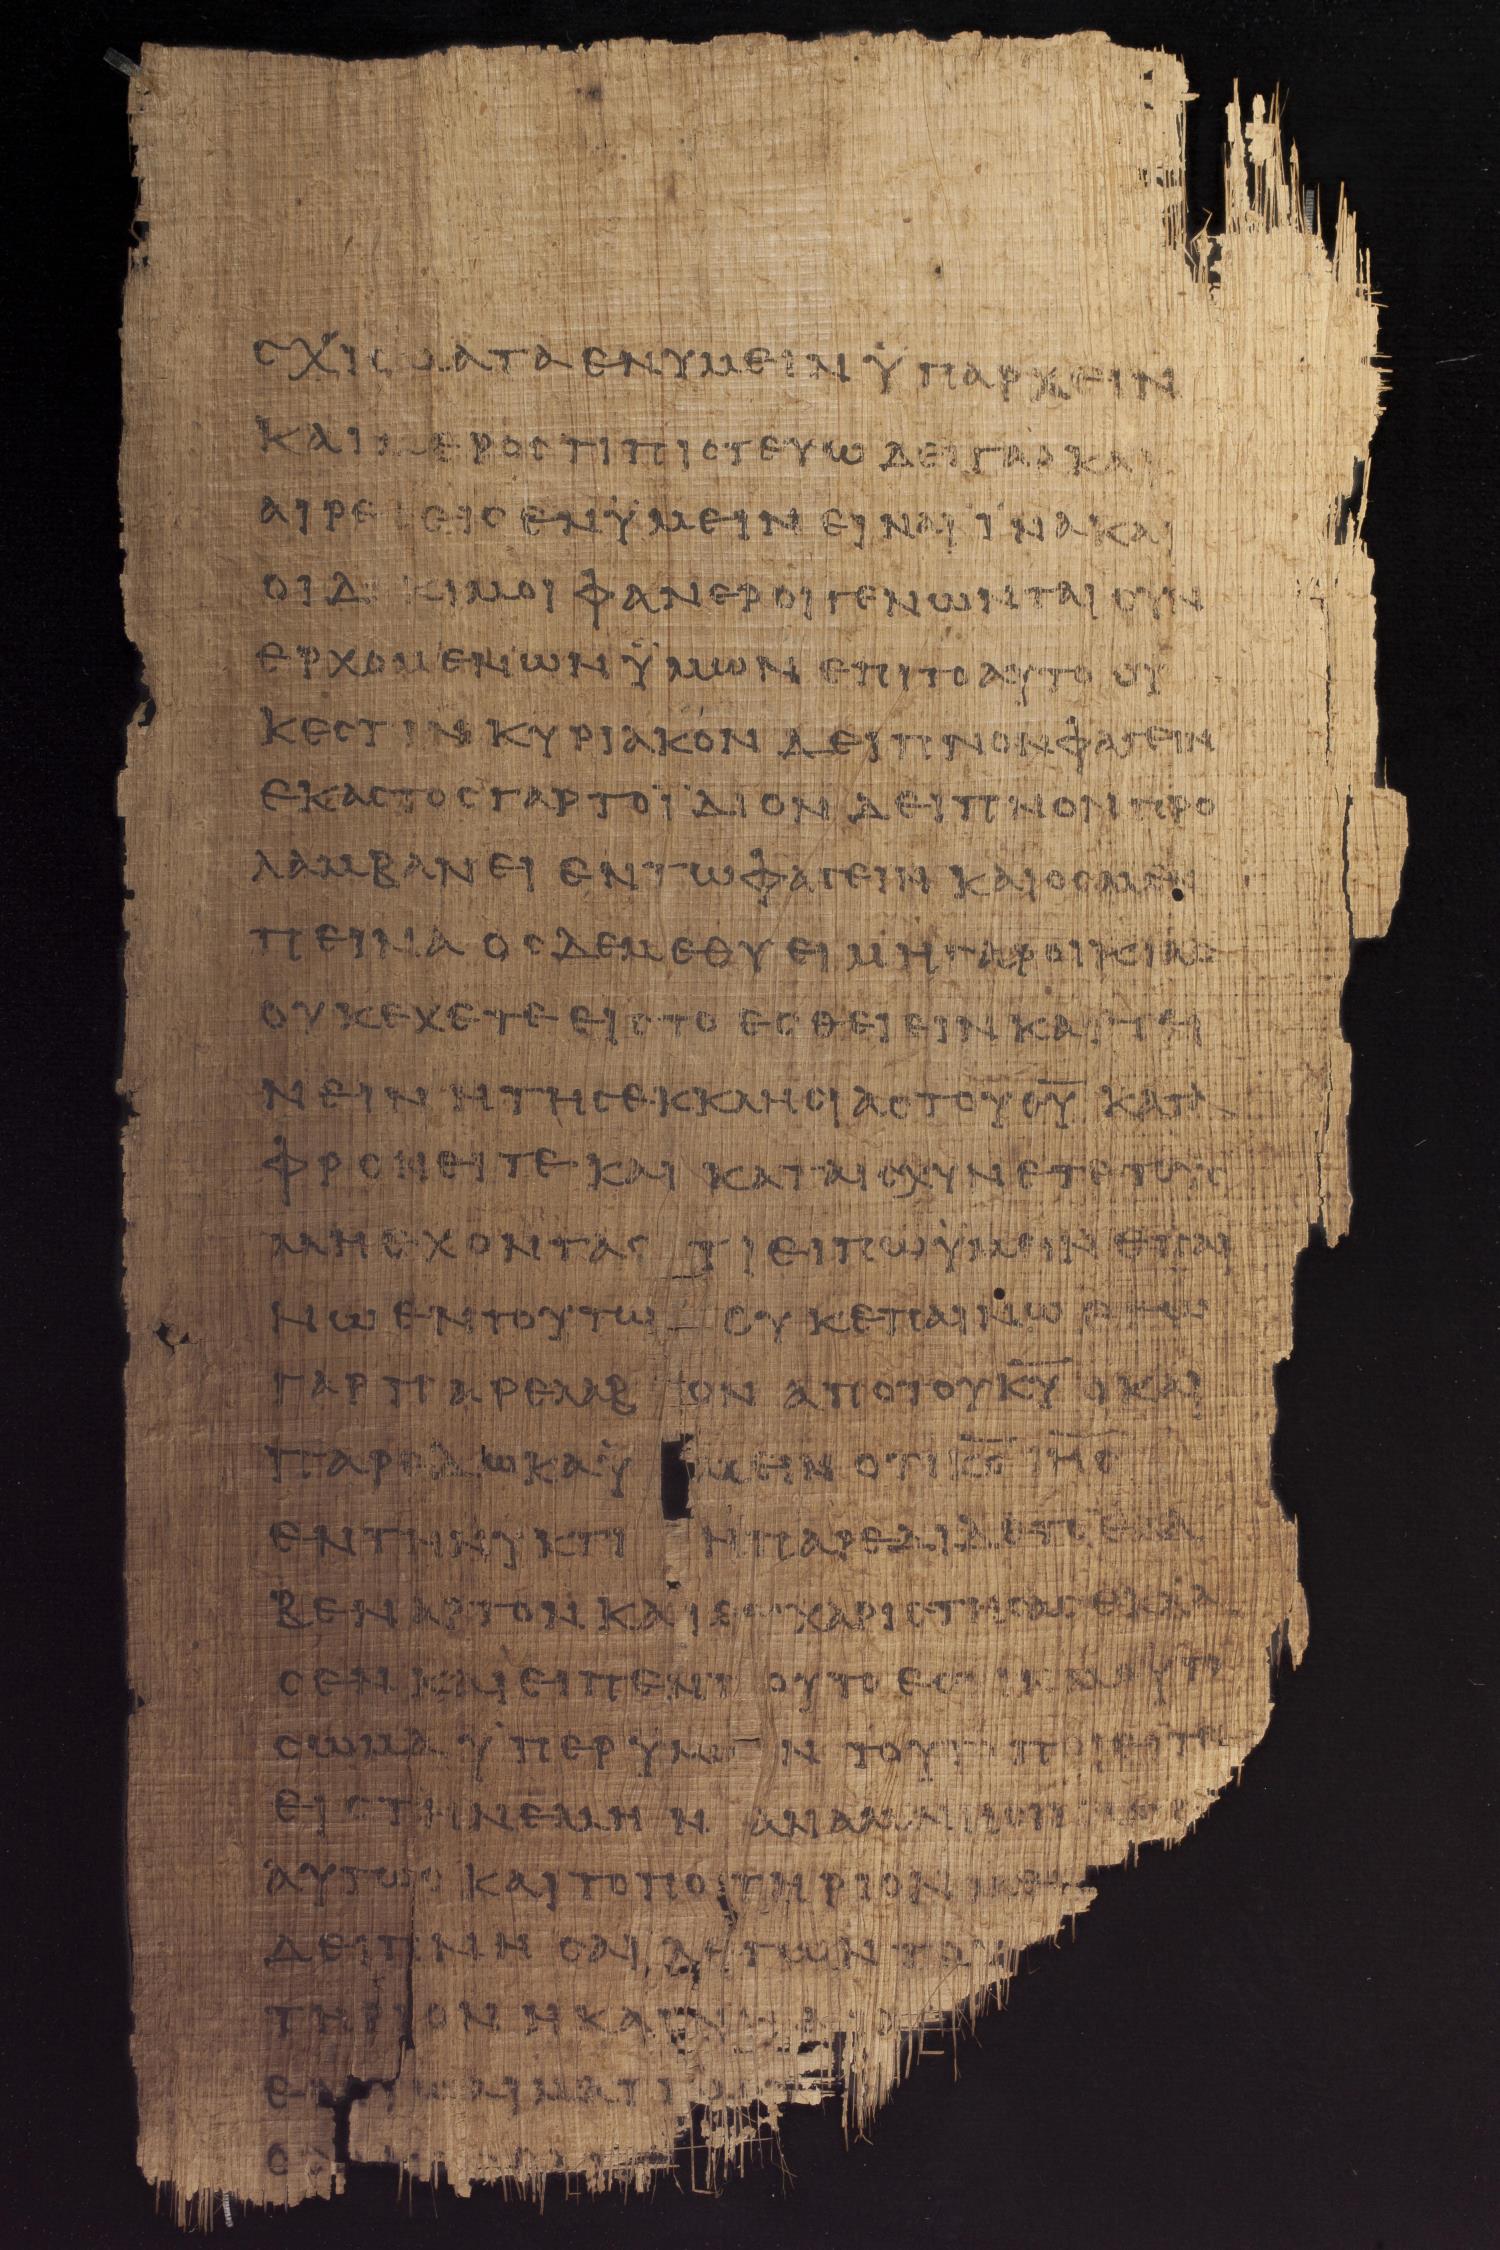 ϲχιϲματα εν υμειν ϋπαρχειν
και μεροϲ τι πιϲτευω δει γαρ και
αιρεϲειϲ εν ϋμειν ειναι ϊνα και
οι δοκιμοι φανεροι γενωνται ϲυν
ερχομενων ϋμων επι το αυτο ου
κ εϲτιν κυριακον δειπνον φαγειν
εκαϲτοϲ γαρ το ϊδιον δειπνον προ
λαμβανει εν τω φαγειν και οϲ μεν
πεινα οϲ δε μεθυει μη γαρ οικιαϲ
ουκ εχετε ειϲ το εϲθιειν και πι
νειν η τηϲ εκκληϲιαϲ του θ̅υ̅ κατα
φρονειτε και καταιϲχυνετε τουϲ
μη εχονταϲ τι ειπω ϋμειν επαι
νω εν τουτω ουκ επαινω εγω
γαρ παρελαβον απο του κ̅υ̅ ο και
παρεδωκα ϋμειν οτι κ̅ϲ̅ ι̅η̅ϲ̅
εν τη νυκτι η παρεδιδετο ελα
βεν αρτον και ευχαριϲτηϲαϲ εκλα
ϲεν και ειπεν τουτο εϲτιν μου το
ϲωμα ϋπερ υμων τουτο ποιειτε
ειϲ την εμην αναμνηϲιν
αυτωϲ και το ποτηριον μετα
δειπνηϲαι λεγων το
τηριον η καινη
αιματι